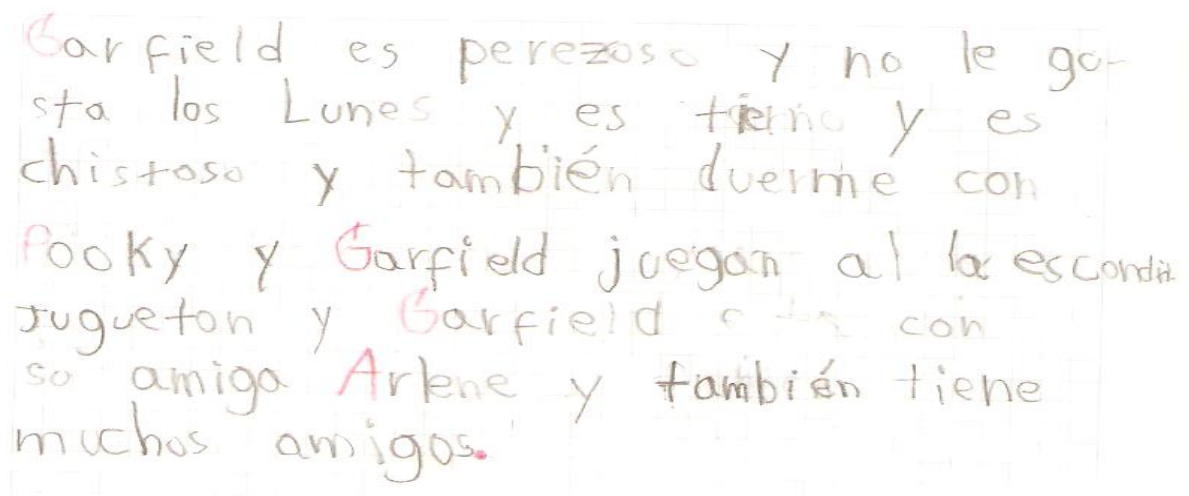 Garfield es perezoso y no le go-
sta los Lunes y es tierno y es
chistoso y también duerme con
Pooky y Garfield juegan al la escondit
Jugueton y Garfield con
so amiga Arlene y también tiene
muchos amigos.